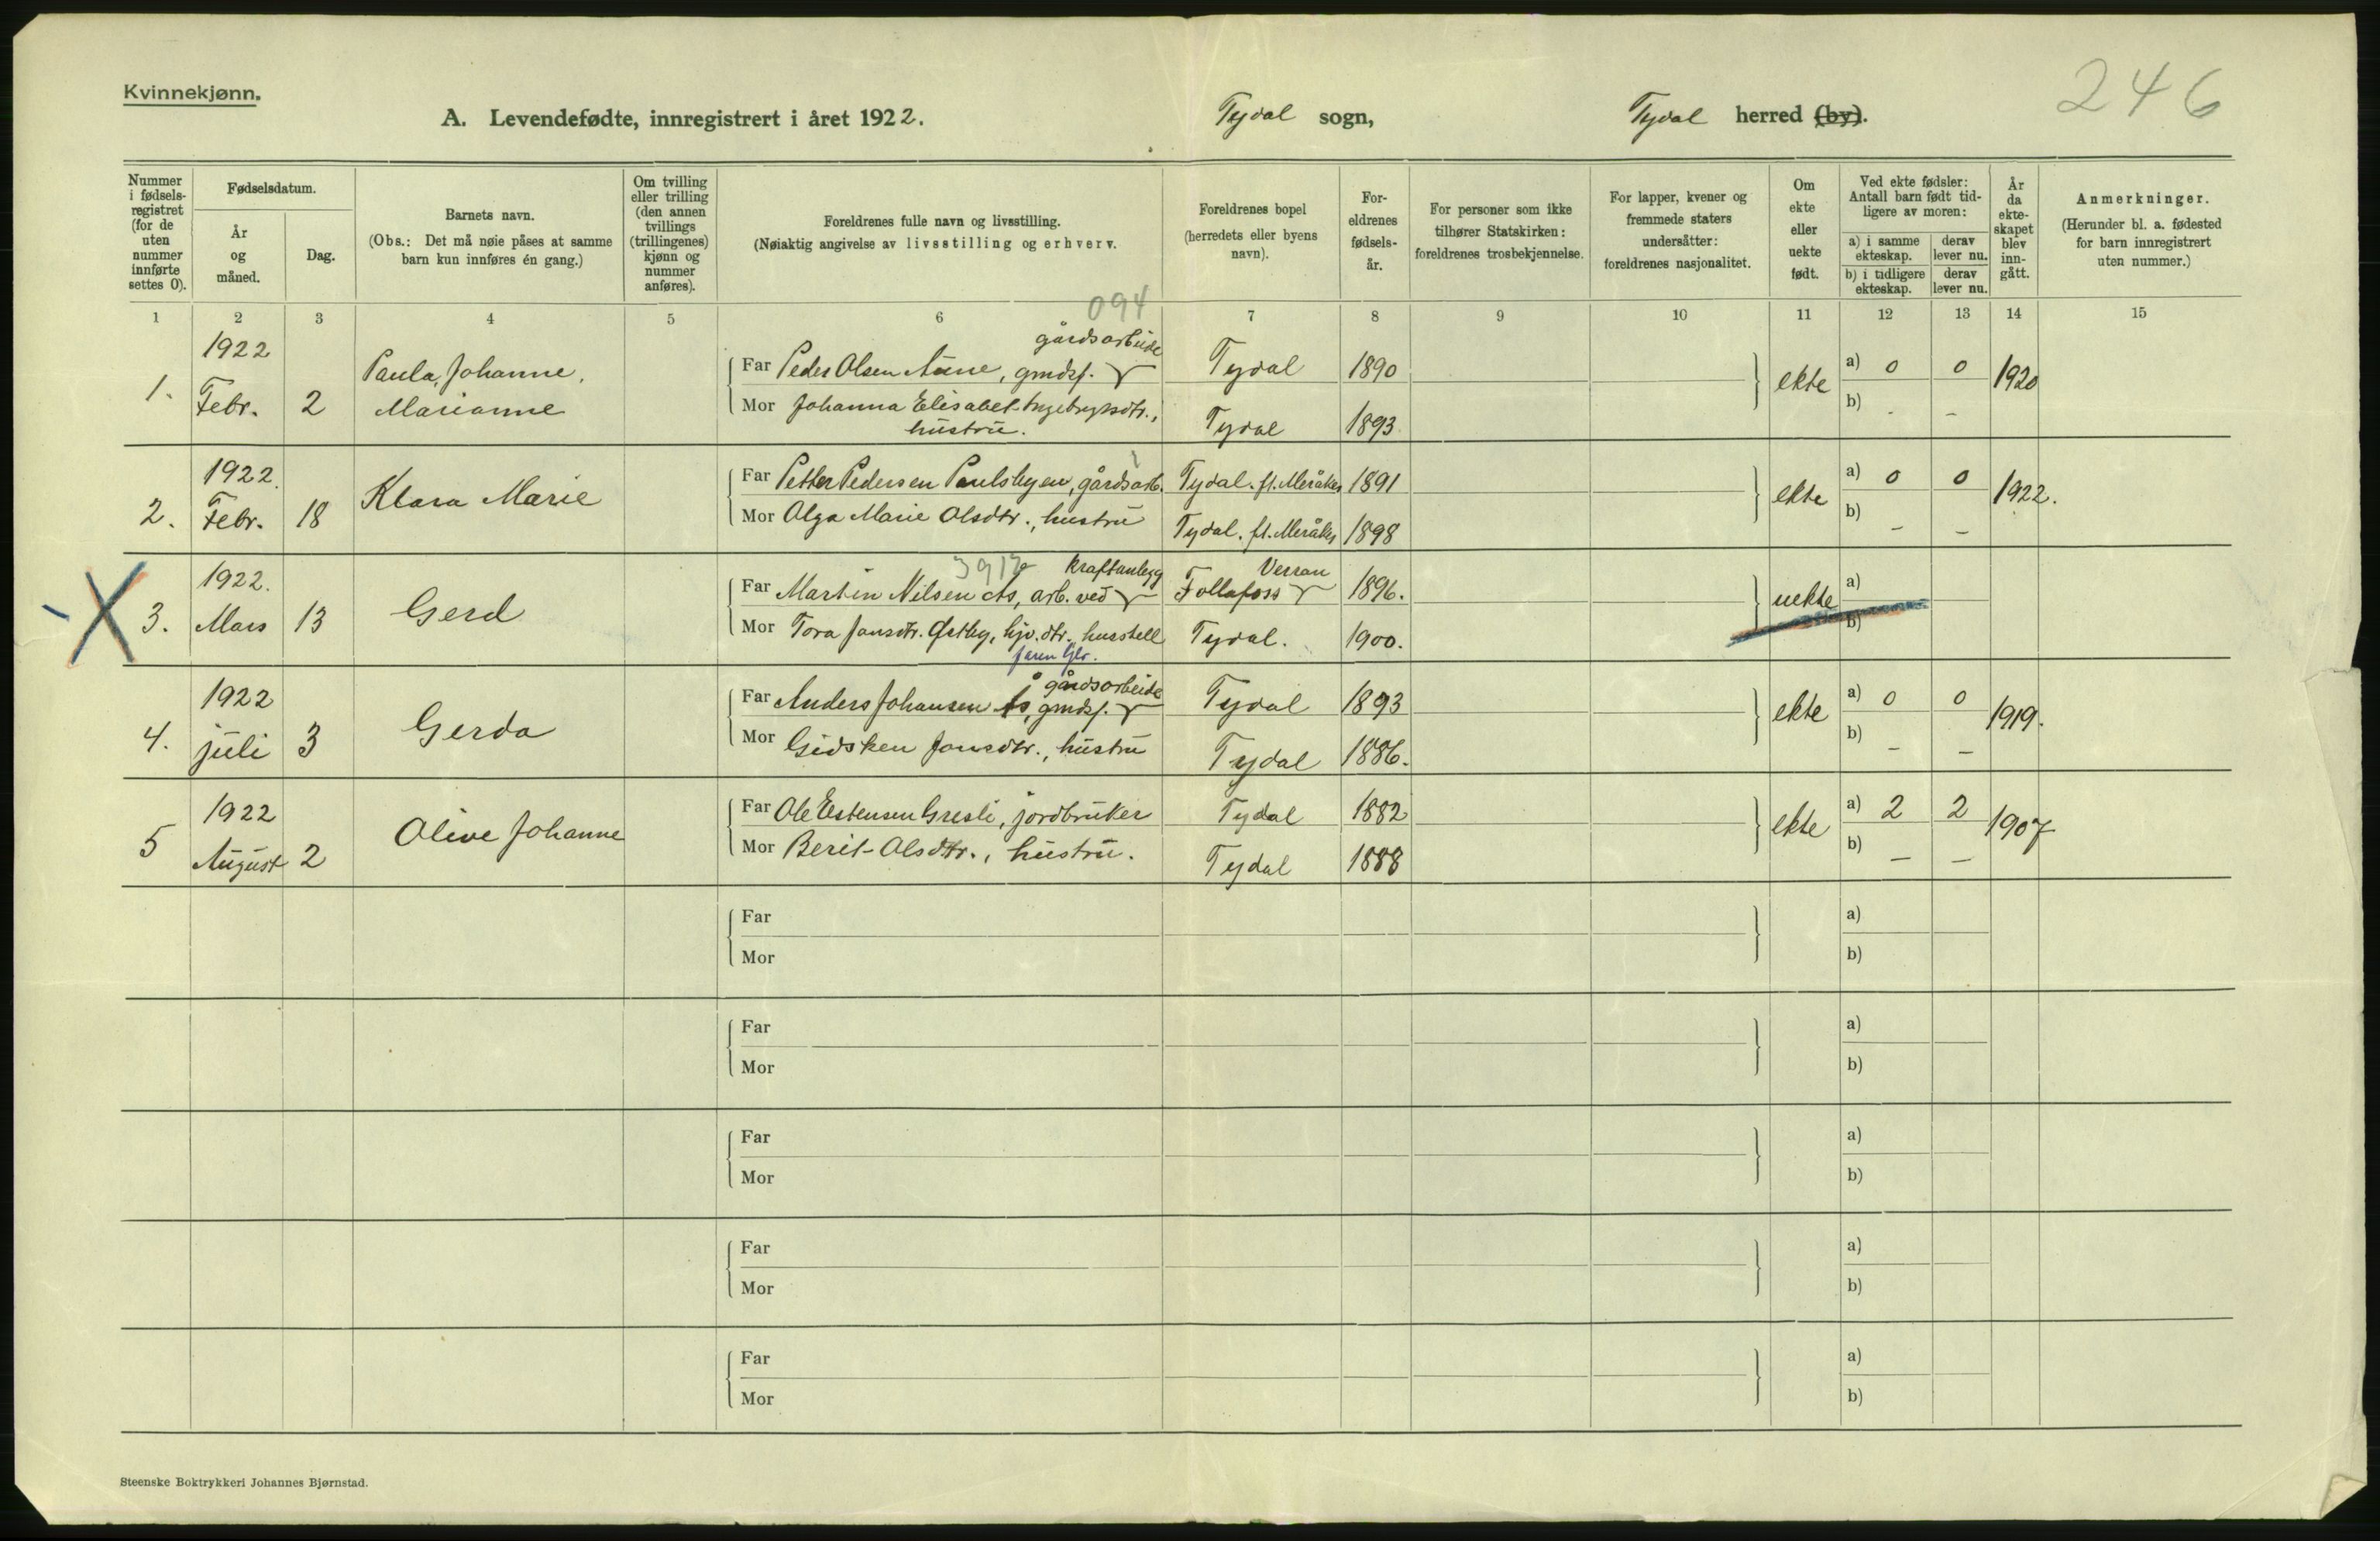 Kvinnekjønn.
246
A. Levendefødte, innregistrert i året 1922. Tydal sogn, Tydal herred (by).
Nummer i fødsels-registret (for de uten nummer innførte settes 0).
Fødselsdatum.
År og måned.
Dag.
Barnets navn.
(Obs.: Det må nøie påses at samme barn kun innføres én gang.)
Om tvilling eller trilling (den annen tvillings (trillingenes) kjønn og nummer anføres).
Foreldrenes fulle navn og livsstilling.
(Nøiaktig angivelse av livsstilling og erhverv.
Foreldrenes bopel (herredets eller byens navn).
For-eldrenes fødsels-år.
For personer som ikke tilhører Statskirken: foreldrenes trosbekjennelse.
For lapper, kvener og fremmede staters undersåtter: foreldrenes nasjonalitet.
Om ekte eller uekte født.
Ved ekte fødsler: Antall barn født tid-ligere av moren:
a) i samme ekteskap.
derav lever nu.
b) i tidligere ekteskap.
derav lever nu.
År da ekte-skapet blev inn-gått.
Anmerkninger.
(Herunder bl. a. fødested for barn innregistrert uten nummer.)
094
1 2 3 4 5 6 7 8 9 10 11 12 13 14 15
1. 1922 Febr. 2 Paula Johanne, Marianne
gårdsarbeide
Far Peder Olsen Aune, gmdsf. Tydal 1890 ekte a) 0 0 1920
Mor Johanna Elisabet Ingebrigtsdtr., hustru. Tydal 1893 b) - -
2. 1922. Febr. 18 Klara Marie
Far Petter Pedersen Paulsbyen, gårdsarb. Tydal. fl. Meråker 1891 ekte a) 0 0 1922.
Mor Olga Marie Olsdtr., hustru Tydal. fl. Meråker 1898 b) - -
3. 1922. Mars 13 Gerd
kraftanlegg Verran
Far Martin Nilsen Ås, arb. ved Follafoss 1896. uekte a)
Mor Tora Jansdtr. Østby, hjv. dtr. husstell Tydal. 1900. b)
4. 1922 juli 3 Gerda
gårdsarbeide
Far Anders Johansen Ås, gmdsf. Tydal 1893 ekte a) 0 0 1919.
Mor Gidsken Jonsdtr., hustru Tydal 1886. b) - -
5 1922 August 2 Olive Johanne
Far Ole Estensen Gresli, jordbruker Tydal 1882 ekte a) 2 2 1907
Mor Berit Olsdtr., hustru. Tydal 1888 b) - -
Far a)
Mor b)
Far a)
Mor b)
Far a)
Mor b)
Far a)
Mor b)
Far a)
Mor b)
Steenske Boktrykkeri Johannes Bjørnstad.